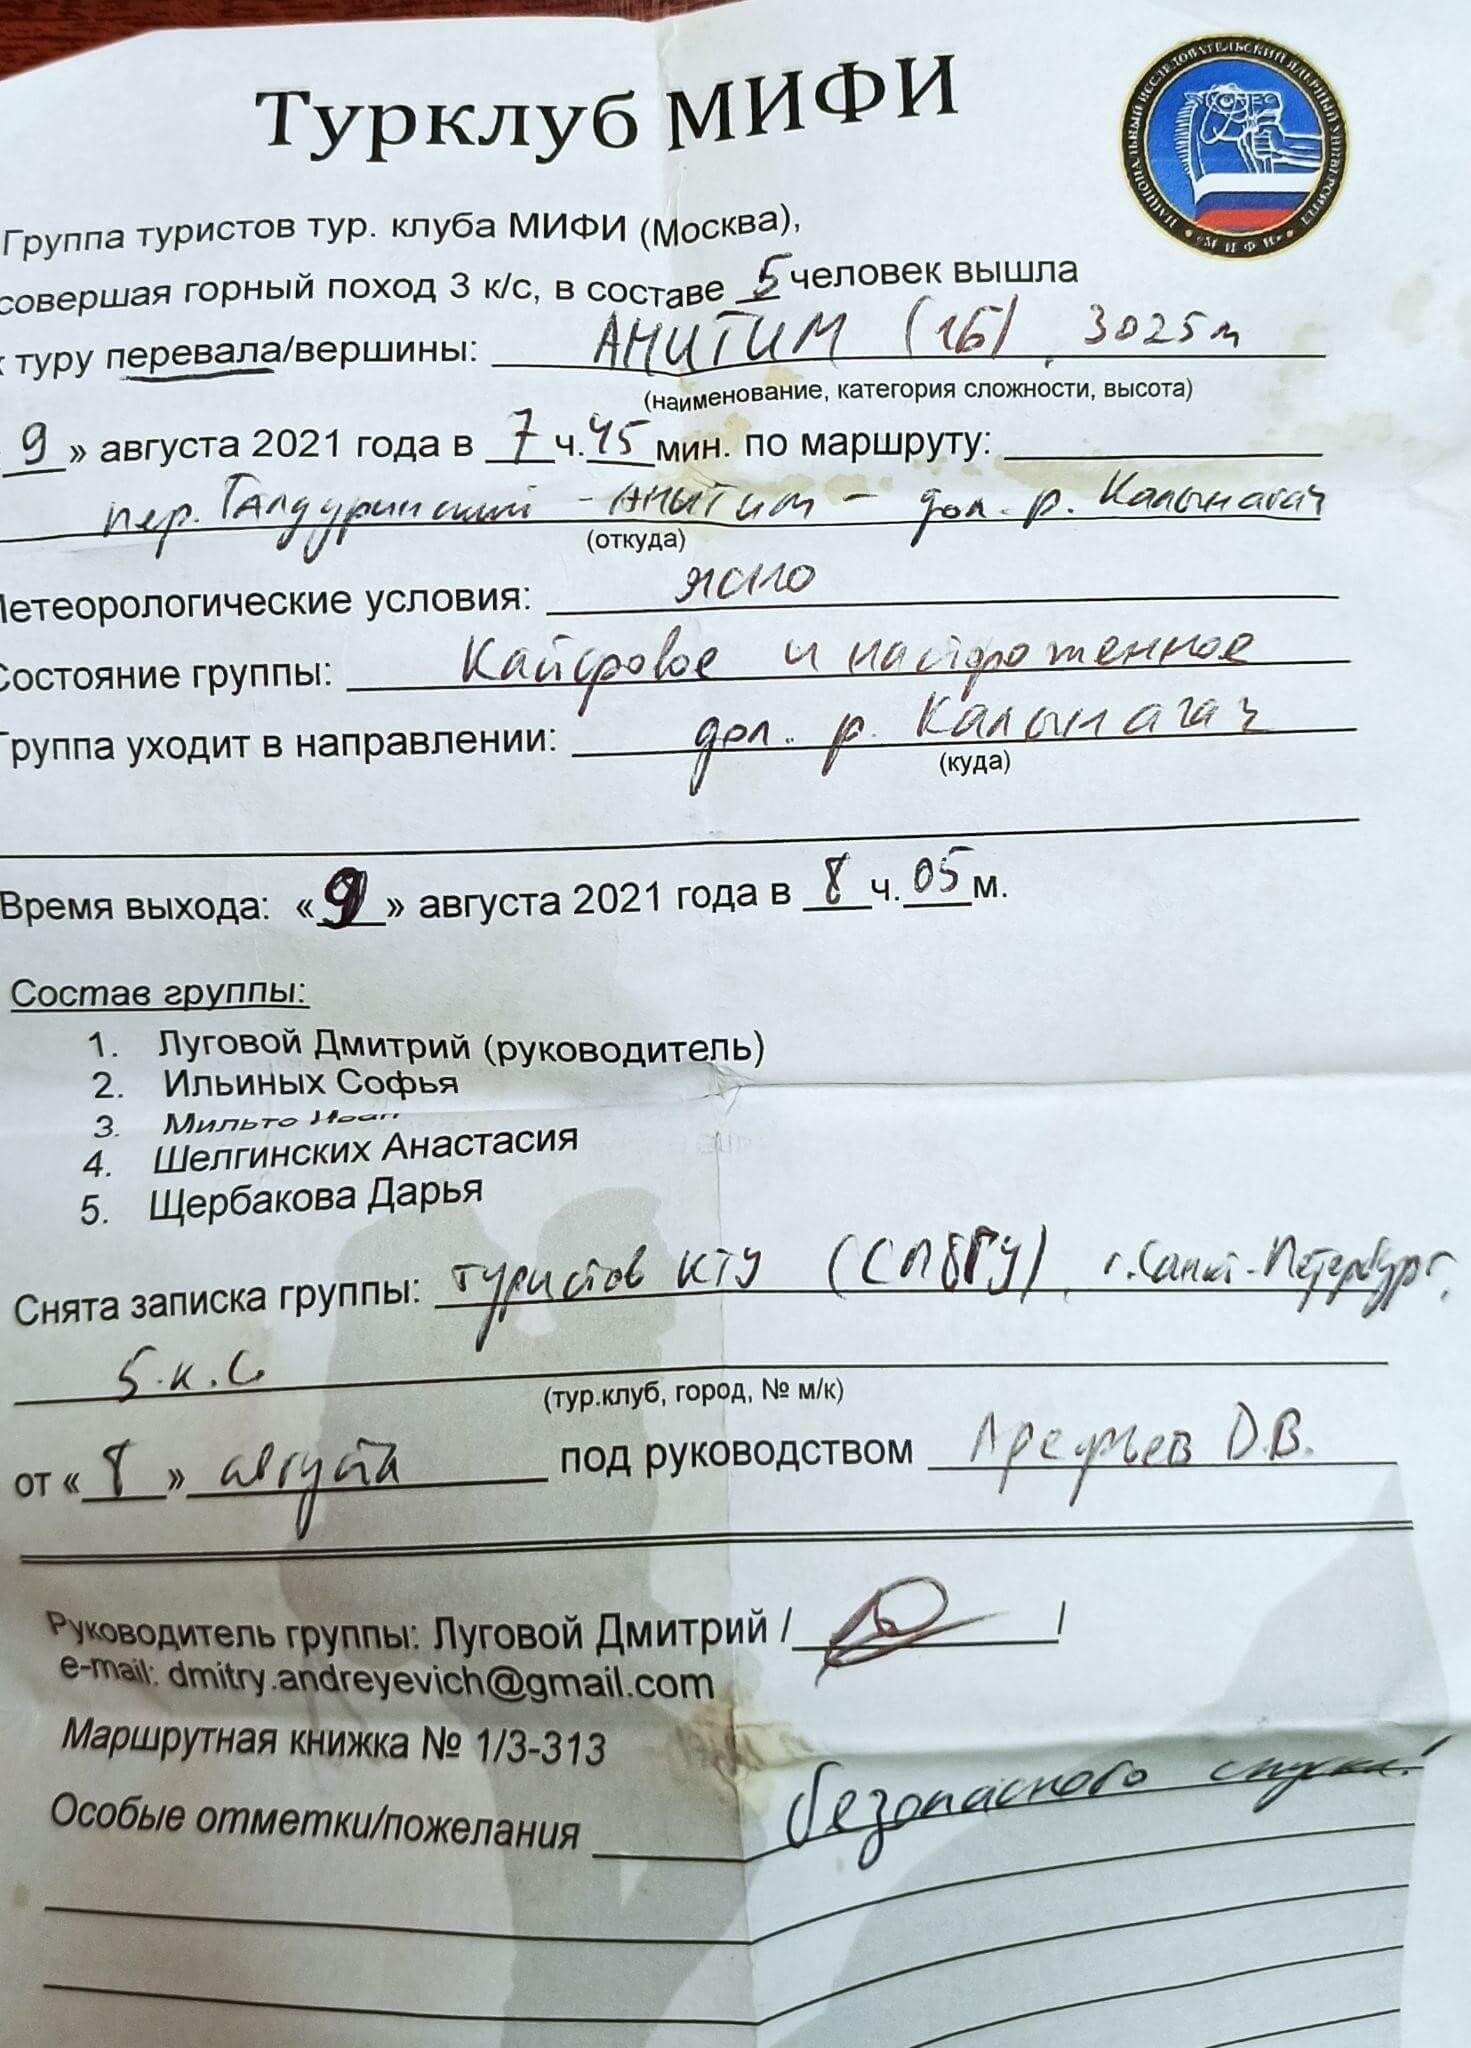 Турклуб МИФИ
НАЦИОНАЛЬНЫЙ ИССЛЕДОВАТЕЛЬСКИЙ ЯДЕРНЫЙ УНИВЕРСИТЕТ • «МИФИ» •
Группа туристов тур. клуба МИФИ (Москва),
совершая горный поход 3 к/с, в составе 5 человек вышла
к туру перевала/вершины: АНИТИМ (1Б), 3025м
(наименование, категория сложности, высота)
9» августа 2021 года в 7 ч. 45 мин. по маршруту:
пер. Талдуринский - Анитим - дол. р. Калынагач
(откуда)
Метеорологические условия: ясно
Состояние группы: Кайфовое и настроженное
Группа уходит в направлении: дол. р. Калынагач
(куда)
Время выхода: «9» августа 2021 года в 8 ч. 05 м.
Состав группы:
1. Луговой Дмитрий (руководитель)
2. Ильиных Софья
3. Мильто Иван
4. Шелгинских Анастасия
5. Щербакова Дарья
Снята записка группы: туристов КТУ (СПбГУ), г. Санкт-Петербург,
5 к.с.
(тур.клуб, город, № м/к)
от «8» августа под руководством Арефьев Д.В.
Руководитель группы: Луговой Дмитрий / /
e-mail: dmitry.andreyevich@gmail.com
Маршрутная книжка № 1/3-313
Особые отметки/пожелания безопасного спуска!